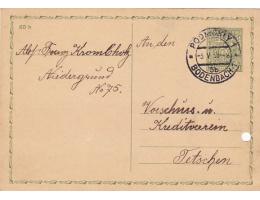 Abs: Franz Krombholz
Niedergrund
No 75.
An den
PODMOKLY 1
BODENBACH
5b
Vorschuss- u.
Kreditverein
Tetschen